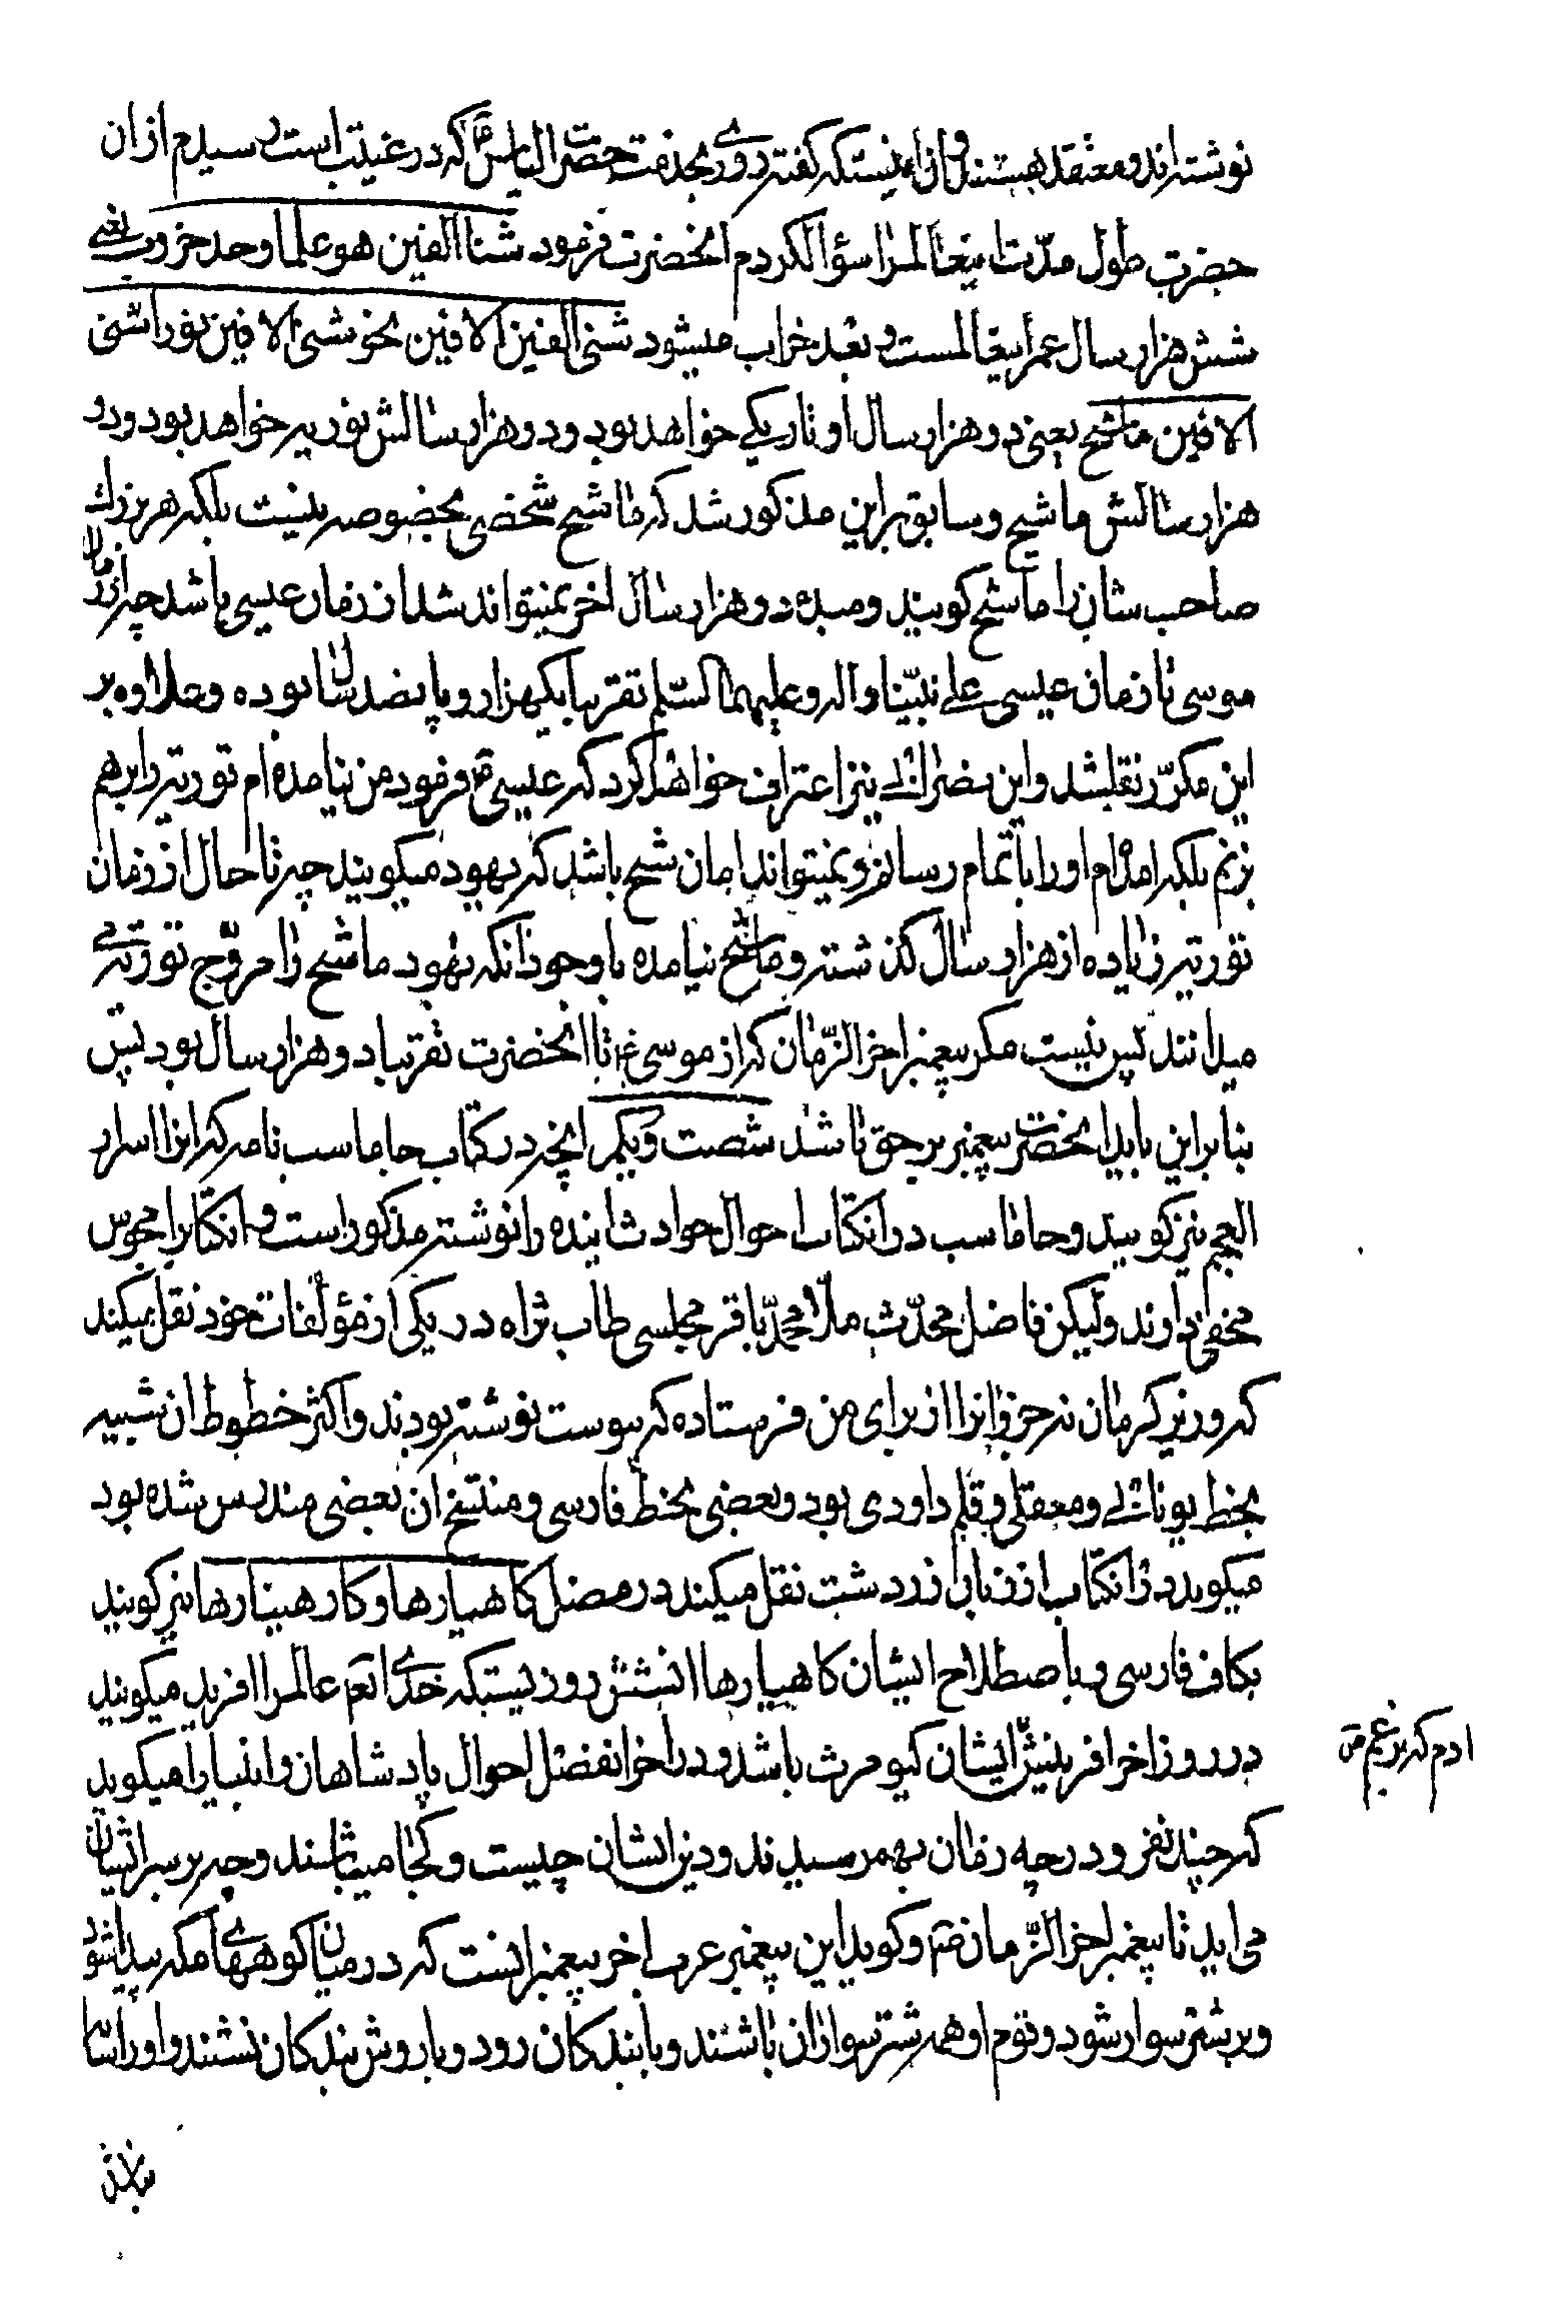 نوشته اند و معتقد هستند و ازان اینستکه گفته روزی بخدمت حضرت الیاس ع که در غیبت است رسیدم از ان
حضرت طول مدّت این عالمرا سؤال کردم انحضرت فرمود شنا الفین هو علما وحد خروب یعنی
شش هزار سال عمر این عالمست و بعد خراب میشود شنی الفین الافین تخو شنی الافین توراشنی
الافین ماشیح یعنی دو هزار سال او تاریکی خواهد بود و دو هزار سالش توریه خواهد بود و دو
هزار سالش ماشیح و سابق بر این مذکور شد که ماشیح شخصی بخصوصه نیست بلکه هر بزرک
صاحب شان را ماشیح کویند و مبدء دو هزار سال اخر نمیتواند شد از زمان عیسی باشد چه از زمان
موسی تا زمان عیسی علی نبیّنا و اله و علیهما السّلم تقریبا یکهزار و پانصد سال بوده و علاوه بر
این مکرّر نقلشد و این نصرانی نیز اعتراف خواهد کرد که عیسی ع فرمود من نیامده ام توریة را برهم
بزنم بلکه امده ام او را باتمام رسانم و نمیتواند امان شیح باشد که یهود میکویند چه تا حال از زمان
توریة زیاده از هزار سال کذشته و ماشیح نیامده با وجود انکه یهود ماشیح را مروّج توریة
میدانند پس نیست مکر پیغمبر اخر الزّمان که از موسی ع تا انحضرت تقریبا دو هزار سال بود پس
بنابراین باید انحضرت پیغمبر بر حق باشد شصت و یکم انچه در کتاب جاماسب نامه که انرا اسرار
العجم نیز کویند و جاماسب در انکتاب احوال حوادث اینده را نوشته مذکور است و انکتابرا مجوس
مخفی دارند ولیکن فاضل محدّث ملّا محمّد باقر مجلسی طاب ثراه در یکی از مؤلّفات خود نقل میکند
که وزیر کرمان نه جزو انرا از برای من فرستاده که بپوست نوشته بودند و اکثر خطوط ان شبیه
بخط یونانی و معقلی و قلم داودی بود و بعضی بخط فارسی و منتسخ ان بعضی مندرس شده بود
میکوید در انکتاب از زبان زردشت نقل میکند در فصل کاهبارها و کارهینبارها نیز کویند
بکاف فارسی و باصطلاح ایشان کاهبارها انشش روزیستکه خدای تعالی عالمرا افرید میکویند
در روز اخر افرینش ایشان کیومرث باشد و در اخر انفصل احوال پادشاهان و انبیا را میکوید
ادم که بزعم من
که چند نفر و در چه زمان بهم رسیدند و دین ایشان چیست و کجا میباشند و چه بر سر ایشان
می اید تا پیغمبر اخر الزّمان ص و کوید این پیغمبر عرب اخر پیغمبرانست که در میان کوههای مکه پیدا شود
و بر شتر سوار شود و قوم او همه شتر سواران باشند و با بندکان رود و بار وش بندکان نشند و او را سا